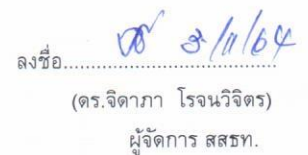 ลงชื่อ.......................................... 3/11/64
(ดร.จิดาภา โรจนวิจิตร)
ผู้จัดการ สสธท.